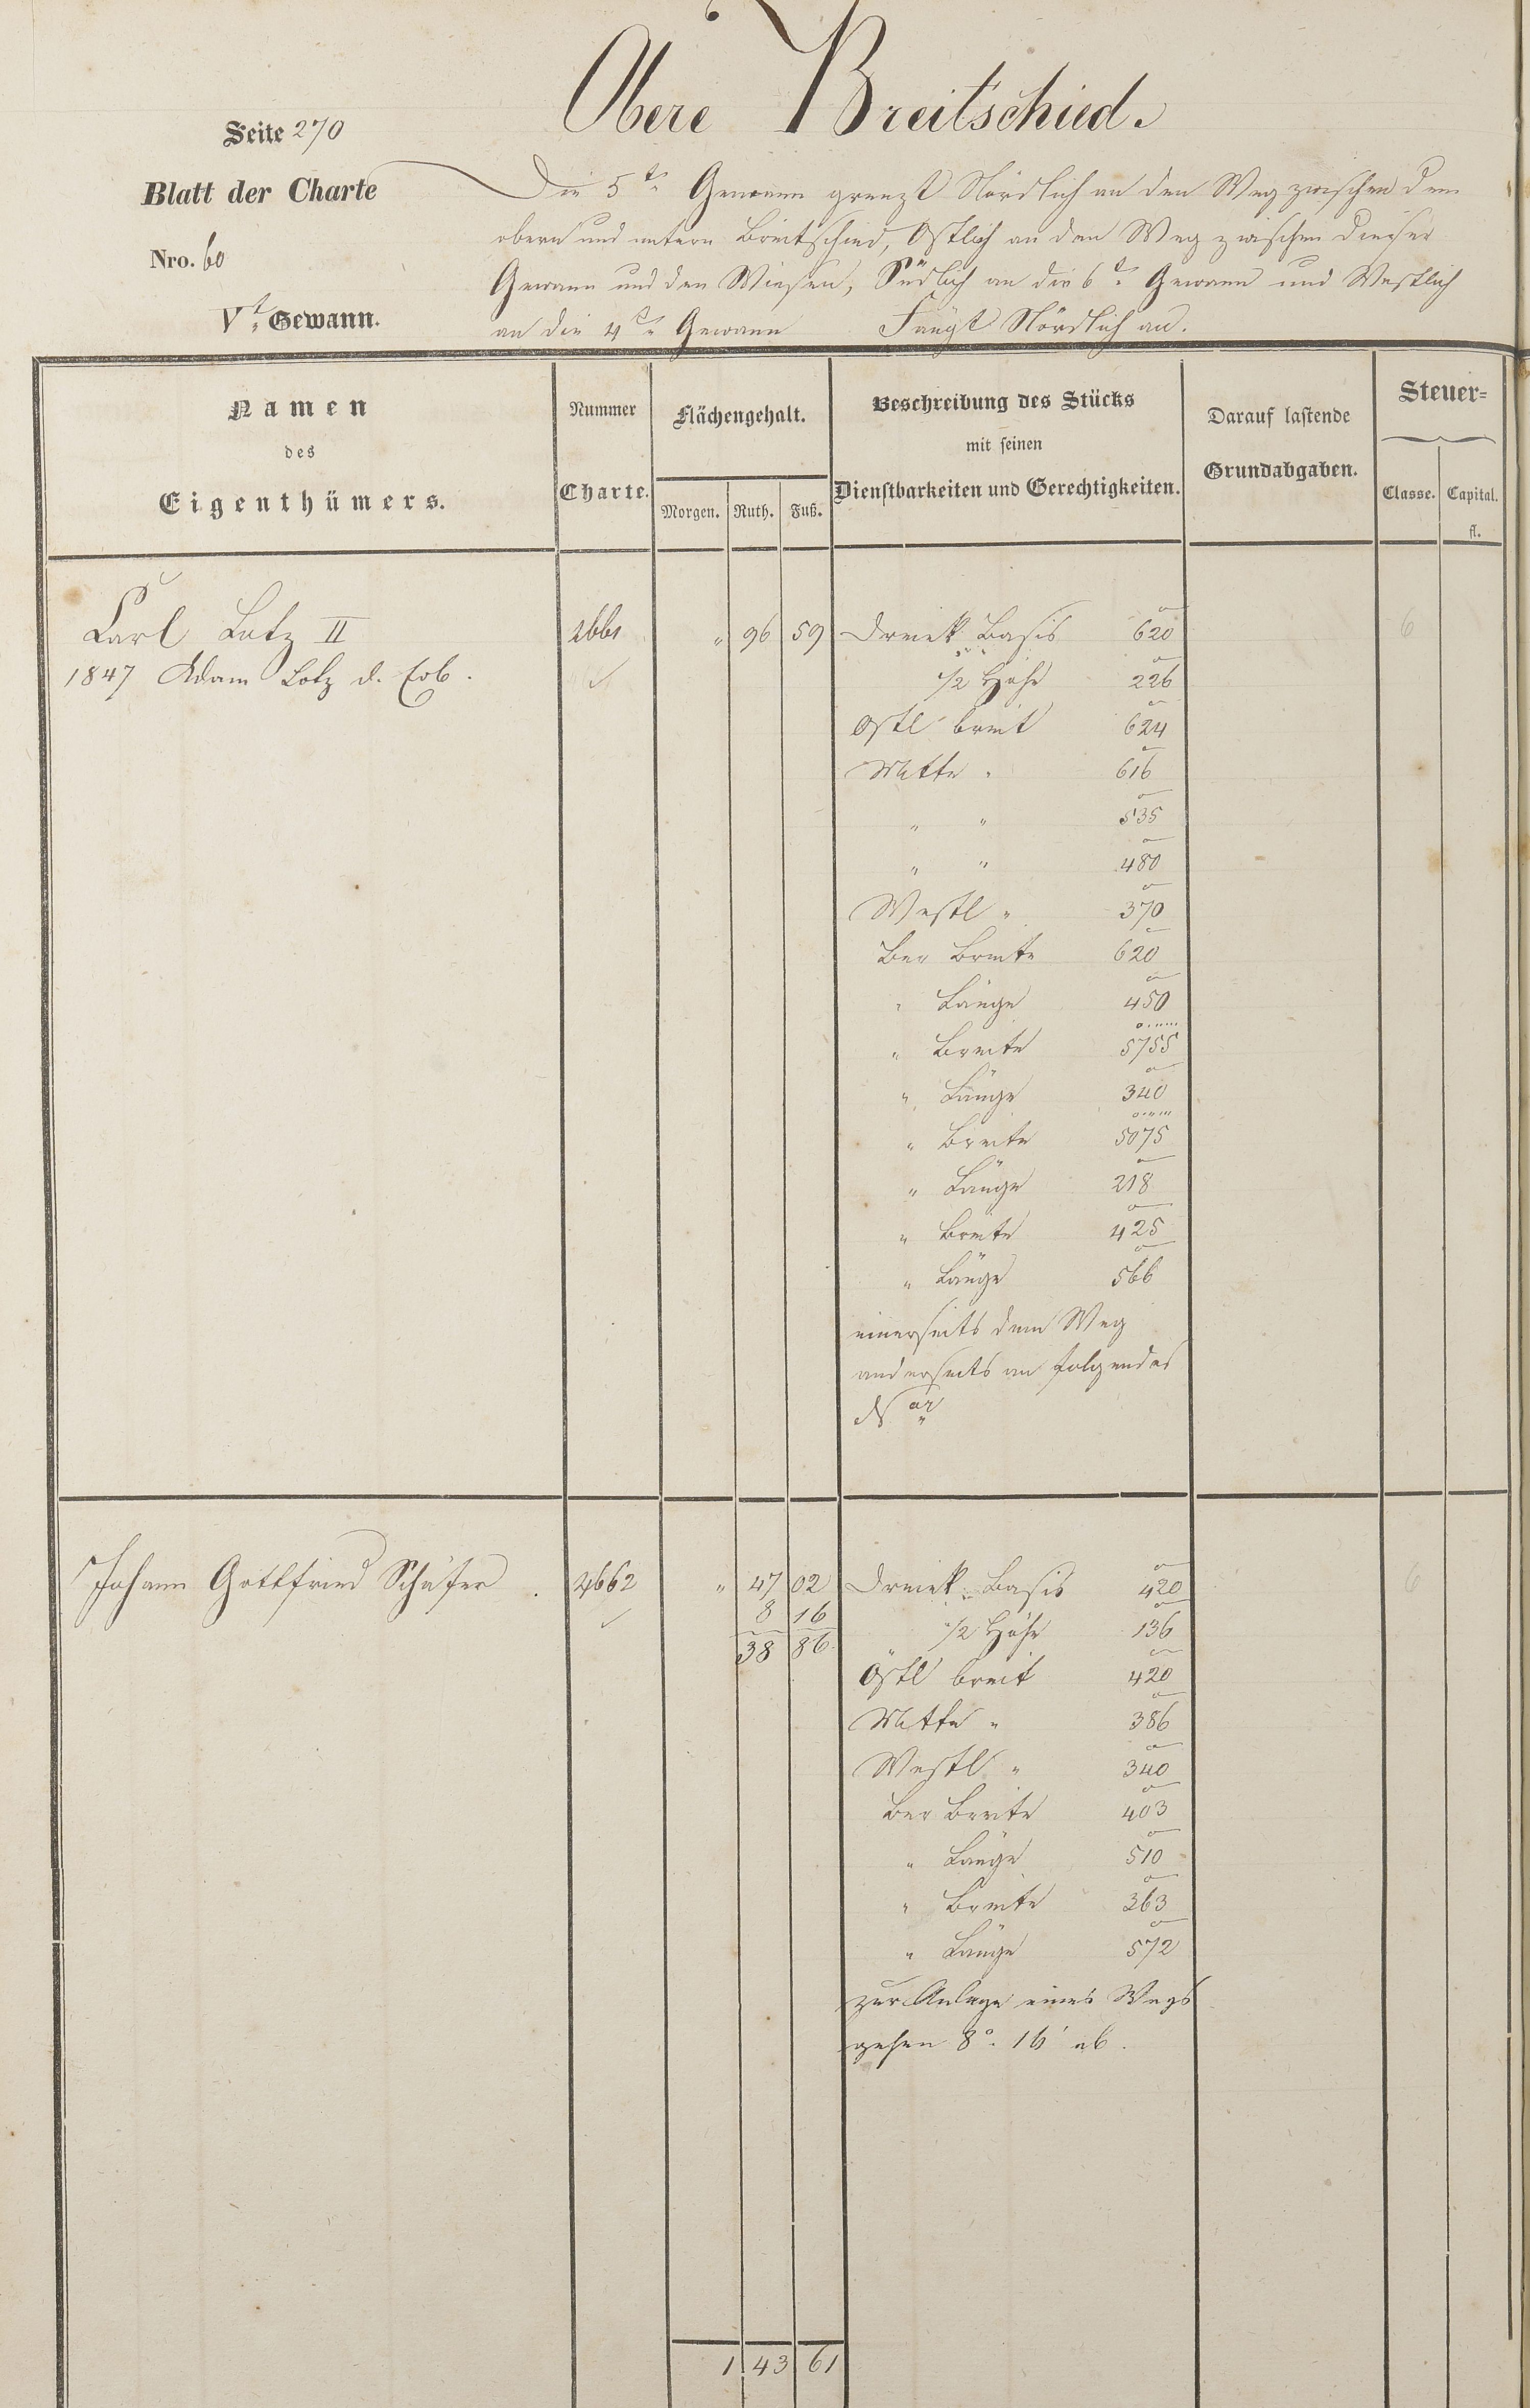 Obere Breitschied.
Seite 270
Blatt der Charte
Nro. 60
Vt. Gewann.
Die 5te Gewann grenzt Nördlich an den Weg zwischen dem
obern und untern Breitschied, Östlich an den Weg zwischen dieser
Gewann und den Wiesen, Südlich an die 6te Gewann und Westlich
an die 4te Gewann Fängt Nördlich an.
Namen des Eigenthümers.
Nummer Charte.
Flächengehalt.
Morgen. Ruth. Fuß.
Beschreibung des Stücks
mit seinen
Dienstbarkeiten und Gerechtigkeiten.
Darauf lastende
Grundabgaben.
Steuer=
Classe. Capital.
fl.
Carl Lotz II 2661 " 96 59 Dreiek Basis 620 6
1847 Adam Lotz d. Erb. 1/2 Höhe 226
Östl breit 624
Mitte " 616
" " 535
" " 480
Westl " 370
Ber Breite 620
" Länge 450
" Breite 5755
" Länge 340
" Breite 5075
" Länge 218
" Breite 425
" Länge 566
einerseits dem Weg
anderseits an folgendes
Johann Gottfried Schäfer. 2662 " 47 02 Dreiek Basis 420 6
8 16 1/2 Höhe 136
38 86
Östl breit 420
Mitte " 386
Westl " 340
Ber Breite 403
" Länge 510
" Breite 363
" Länge 572
zur Anlage eines Wegs
gehen 8° 16' ab.
1 43 61